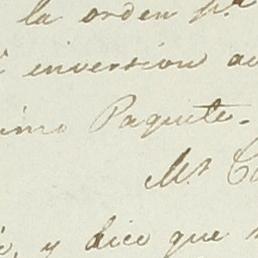 la orden p.ª
inversion
Paquete.
Mr. C
y dice que